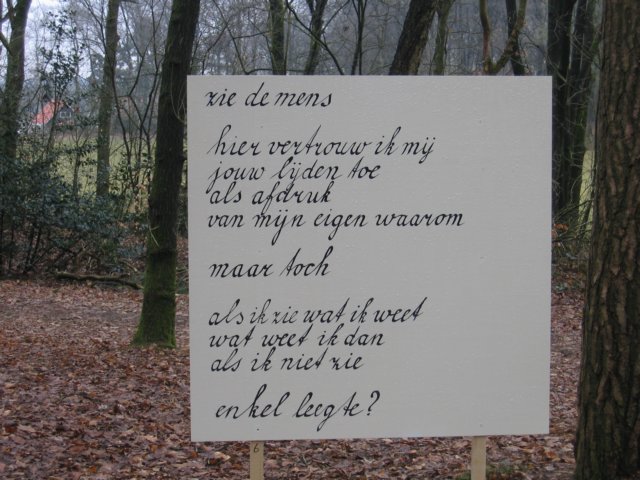 zie de mens
hier vertrouw ik mij
jouw lijden toe
als afdruk
van mijn eigen waarom
maar toch
als ik zie wat ik weet
wat weet ik dan
als ik niet zie
enkel leegte?
6